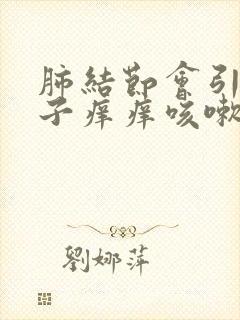 肺結節會引
子痒痒咳嗽
劉娜萍